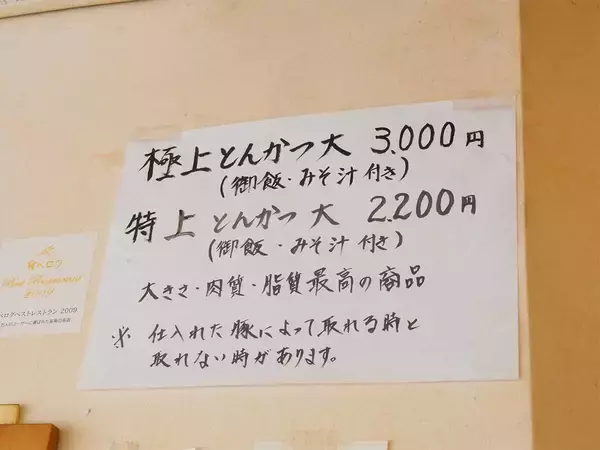 極上とんかつ大 3.000円
(御飯・みそ汁付き)
特上とんかつ大 2.200円
(御飯・みそ汁付き)
大きさ・肉質・脂質最高の商品
※ 仕入れた豚によって取れる時と
取れない時があります。
食べログ
Best Restaurant
2009
ベログベストレストラン 2009